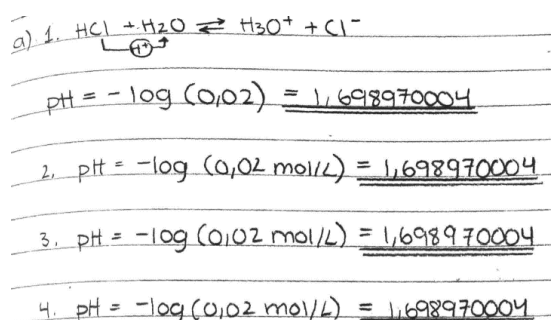 a) 1. HCl + H2O ⇄ H3O+ + Cl-
H+
pH = - log (0,02) = 1,698970004
2. pH = -log (0,02 mol/L) = 1,698970004
3. pH = -log (0,02 mol/L) = 1,698970004
4. pH = -log (0,02 mol/L) = 1,698970004